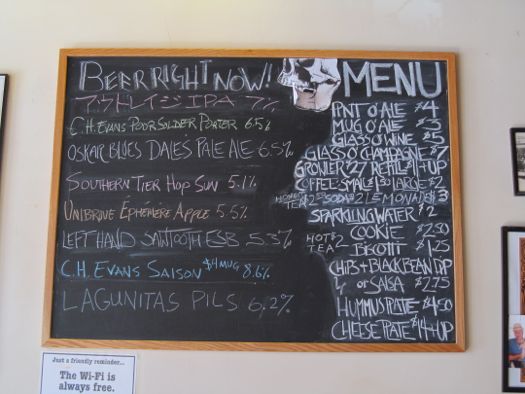 BEER RIGHT NOW!
アウトレイジ IPA 7%
C.H. EVANS POOR SOLDER PORTER 6.5%
OSKAR BLUES DALES PALE ALE 6.5%
SOUTHERN TIER HOP SUN 5.1%
UNIBROUE ÉPHÉMÈRE APPLE 5.5%
LEFT HAND SAWTOOTH ESB 5.3%
C.H. EVANS SAISON $4 MUG 8.6%
LAGUNITAS PILS 6.2%
MENU
PINT O' ALE $4
MUG O' ALE $5
GLASS O' WINE $5
GLASS O' CHAMPAGNE $7
GROWLER $7 REFILL $11+UP
COFFEE-SMALL $1.50 LARGE $2
TEA $2 SODA $2 LEMONADE $3
SPARKLING WATER $2
COOKIE $2.50
HOT TEA $2
BISCOTTI $1.25
CHIPS + BLACK BEAN DIP
OR SALSA $2.75
HUMMUS PLATE $4.50
CHEESE PLATE $14+UP
Just a friendly reminder...
The Wi-Fi is
always free.